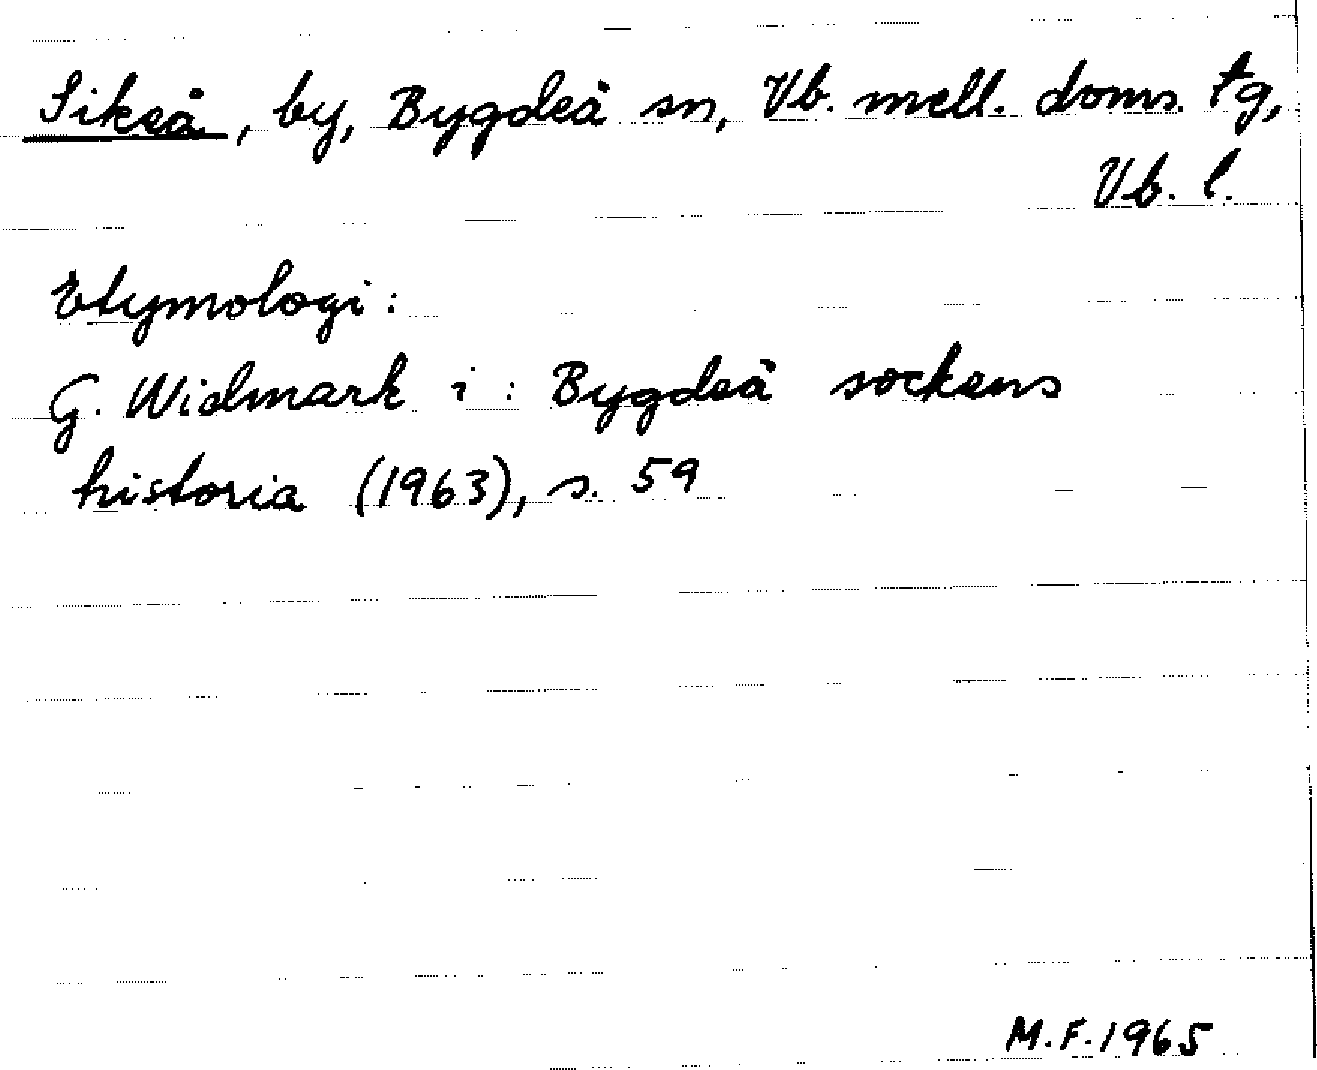 Sikeå, by, Bygdeå sn, Vb. mell. doms. tg,
Vb. l.
Etymologi:
G. Widmark i: Bygdeå sockens
historia (1963), s. 59
M.F. 1965